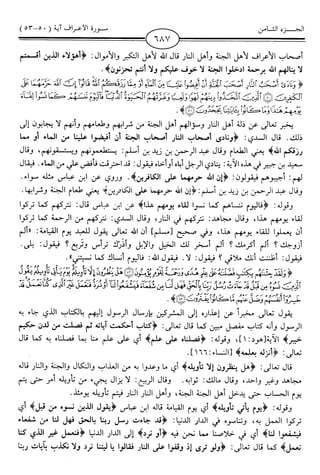 الجزء الثامن
٦٨٧
سورة الأعراف آية (٥٠ - ٥٣)
أصحاب الأعراف لأهل الجنة وأهل النار قال الله لأهل التكبر والأموال: ﴿أهؤلاء الذين أقسمتم
لا ينالهم الله برحمة ادخلوا الجنة لا خوف عليكم ولا أنتم تحزنون﴾.
﴿ وَنَادَىٰ أَصْحَابُ النَّارِ أَصْحَابَ الْجَنَّةِ أَنْ أَفِيضُوا عَلَيْنَا مِنَ الْمَاءِ أَوْ مِمَّا رَزَقَكُمُ اللَّهُ قَالُوا إِنَّ اللَّهَ حَرَّمَهُمَا عَلَى
الْكَافِرِينَ ۝ الَّذِينَ اتَّخَذُوا دِينَهُمْ لَهْوًا وَلَعِبًا وَغَرَّتْهُمُ الْحَيَاةُ الدُّنْيَا فَالْيَوْمَ نَنسَاهُمْ كَمَا نَسُوا لِقَاءَ
يَوْمِهِمْ هَٰذَا وَمَا كَانُوا بِآيَاتِنَا يَجْحَدُونَ ۝ ﴾
يخبر تعالى عن ذلة أهل النار وسؤالهم أهل الجنة من شرابهم وطعامهم وأنهم لا يجابون إلى
ذلك. قال السدي: ﴿ونادى أصحاب النار أصحاب الجنة أن أفيضوا علينا من الماء أو مما
رزقكم الله﴾ يعني الطعام وقال عبد الرحمن بن زيد بن أسلم: يستطعمونهم ويستسقونهم، وقال
سعيد بن جبير في هذه الآية: ينادي الرجل أباه أو أخاه فيقول: قد احترقت فأفض علي من الماء. فيقال
لهم: أجيبوهم فيقولون: ﴿إن الله حرمهما على الكافرين﴾. وروي عن ابن عباس مثله سواء.
وقال عبد الرحمن بن زيد بن أسلم: ﴿إن الله حرمهما على الكافرين﴾ يعني طعام الجنة وشرابها.
وقوله: ﴿فاليوم ننساهم كما نسوا لقاء يومهم هذا﴾ عن ابن عباس قال: نتركهم كما تركوا
لقاء يومهم هذا، وقال مجاهد: نتركهم في النار، وقال السدي: نتركهم من الرحمة كما تركوا
أن يعملوا للقاء يومهم هذا، وفي صحيح [مسلم] أن الله تعالى يقول للعبد يوم القيامة: «ألم
أزوجك؟ ألم أكرمك؟ ألم أسخر لك الخيل والإبل وأذرك ترأس وتربع؟ فيقول: بلى.
فيقول: أظننت أنك ملاقي؟ فيقول: لا. فيقول الله: فاليوم أنساك كما نسيتني».
﴿ وَلَقَدْ جِئْنَاهُم بِكِتَابٍ فَصَّلْنَاهُ عَلَىٰ عِلْمٍ هُدًى وَرَحْمَةً لِّقَوْمٍ يُؤْمِنُونَ ۝ هَلْ يَنظُرُونَ إِلَّا تَأْوِيلَهُ يَوْمَ يَأْتِي تَأْوِيلُهُ يَقُولُ
الَّذِينَ نَسُوهُ مِن قَبْلُ قَدْ جَاءَتْ رُسُلُ رَبِّنَا بِالْحَقِّ فَهَل لَّنَا مِن شُفَعَاءَ فَيَشْفَعُوا لَنَا أَوْ نُرَدُّ فَنَعْمَلَ غَيْرَ الَّذِي كُنَّا نَعْمَلُ قَدْ
خَسِرُوا أَنفُسَهُمْ وَضَلَّ عَنْهُم مَّا كَانُوا يَفْتَرُونَ ۝ ﴾
يقول تعالى مخبراً عن إعذاره إلى المشركين بإرسال الرسول إليهم بالكتاب الذي جاء به
الرسول وأنه كتاب مفصل مبين كما قال تعالى: ﴿كتاب أحكمت آياته ثم فصلت من لدن حكيم
خبير﴾ الآية [هود: ١]، وقوله: ﴿فصلناه على علم﴾ أي على علم منا بما فصلناه به كما قال
تعالى: ﴿أنزله بعلمه﴾ [النساء: ١٦٦].
قال تعالى: ﴿هل ينظرون إلا تأويله﴾ أي ما وعدوا به من العذاب والنكال والجنة والنار قاله
مجاهد وغير واحد، وقال مالك: ثوابه. وقال الربيع: لا يزال يجيء من تأويله أمر حتى يتم
يوم الحساب حتى يدخل أهل الجنة الجنة، وأهل النار النار فيتم تأويله يومئذ.
وقوله: ﴿يوم يأتي تأويله﴾ أي يوم القيامة قاله ابن عباس ﴿يقول الذين نسوه من قبل﴾ أي
تركوا العمل به، وتناسوه في الدار الدنيا: ﴿قد جاءت رسل ربنا بالحق فهل لنا من شفعاء
فيشفعوا لنا﴾ أي في خلاصنا مما نحن فيه ﴿أو نرد﴾ إلى الدار الدنيا ﴿فنعمل غير الذي كنا
نعمل﴾ كما قال تعالى: ﴿ولو ترى إذ وقفوا على النار فقالوا يا ليتنا نرد ولا نكذب بآيات ربنا